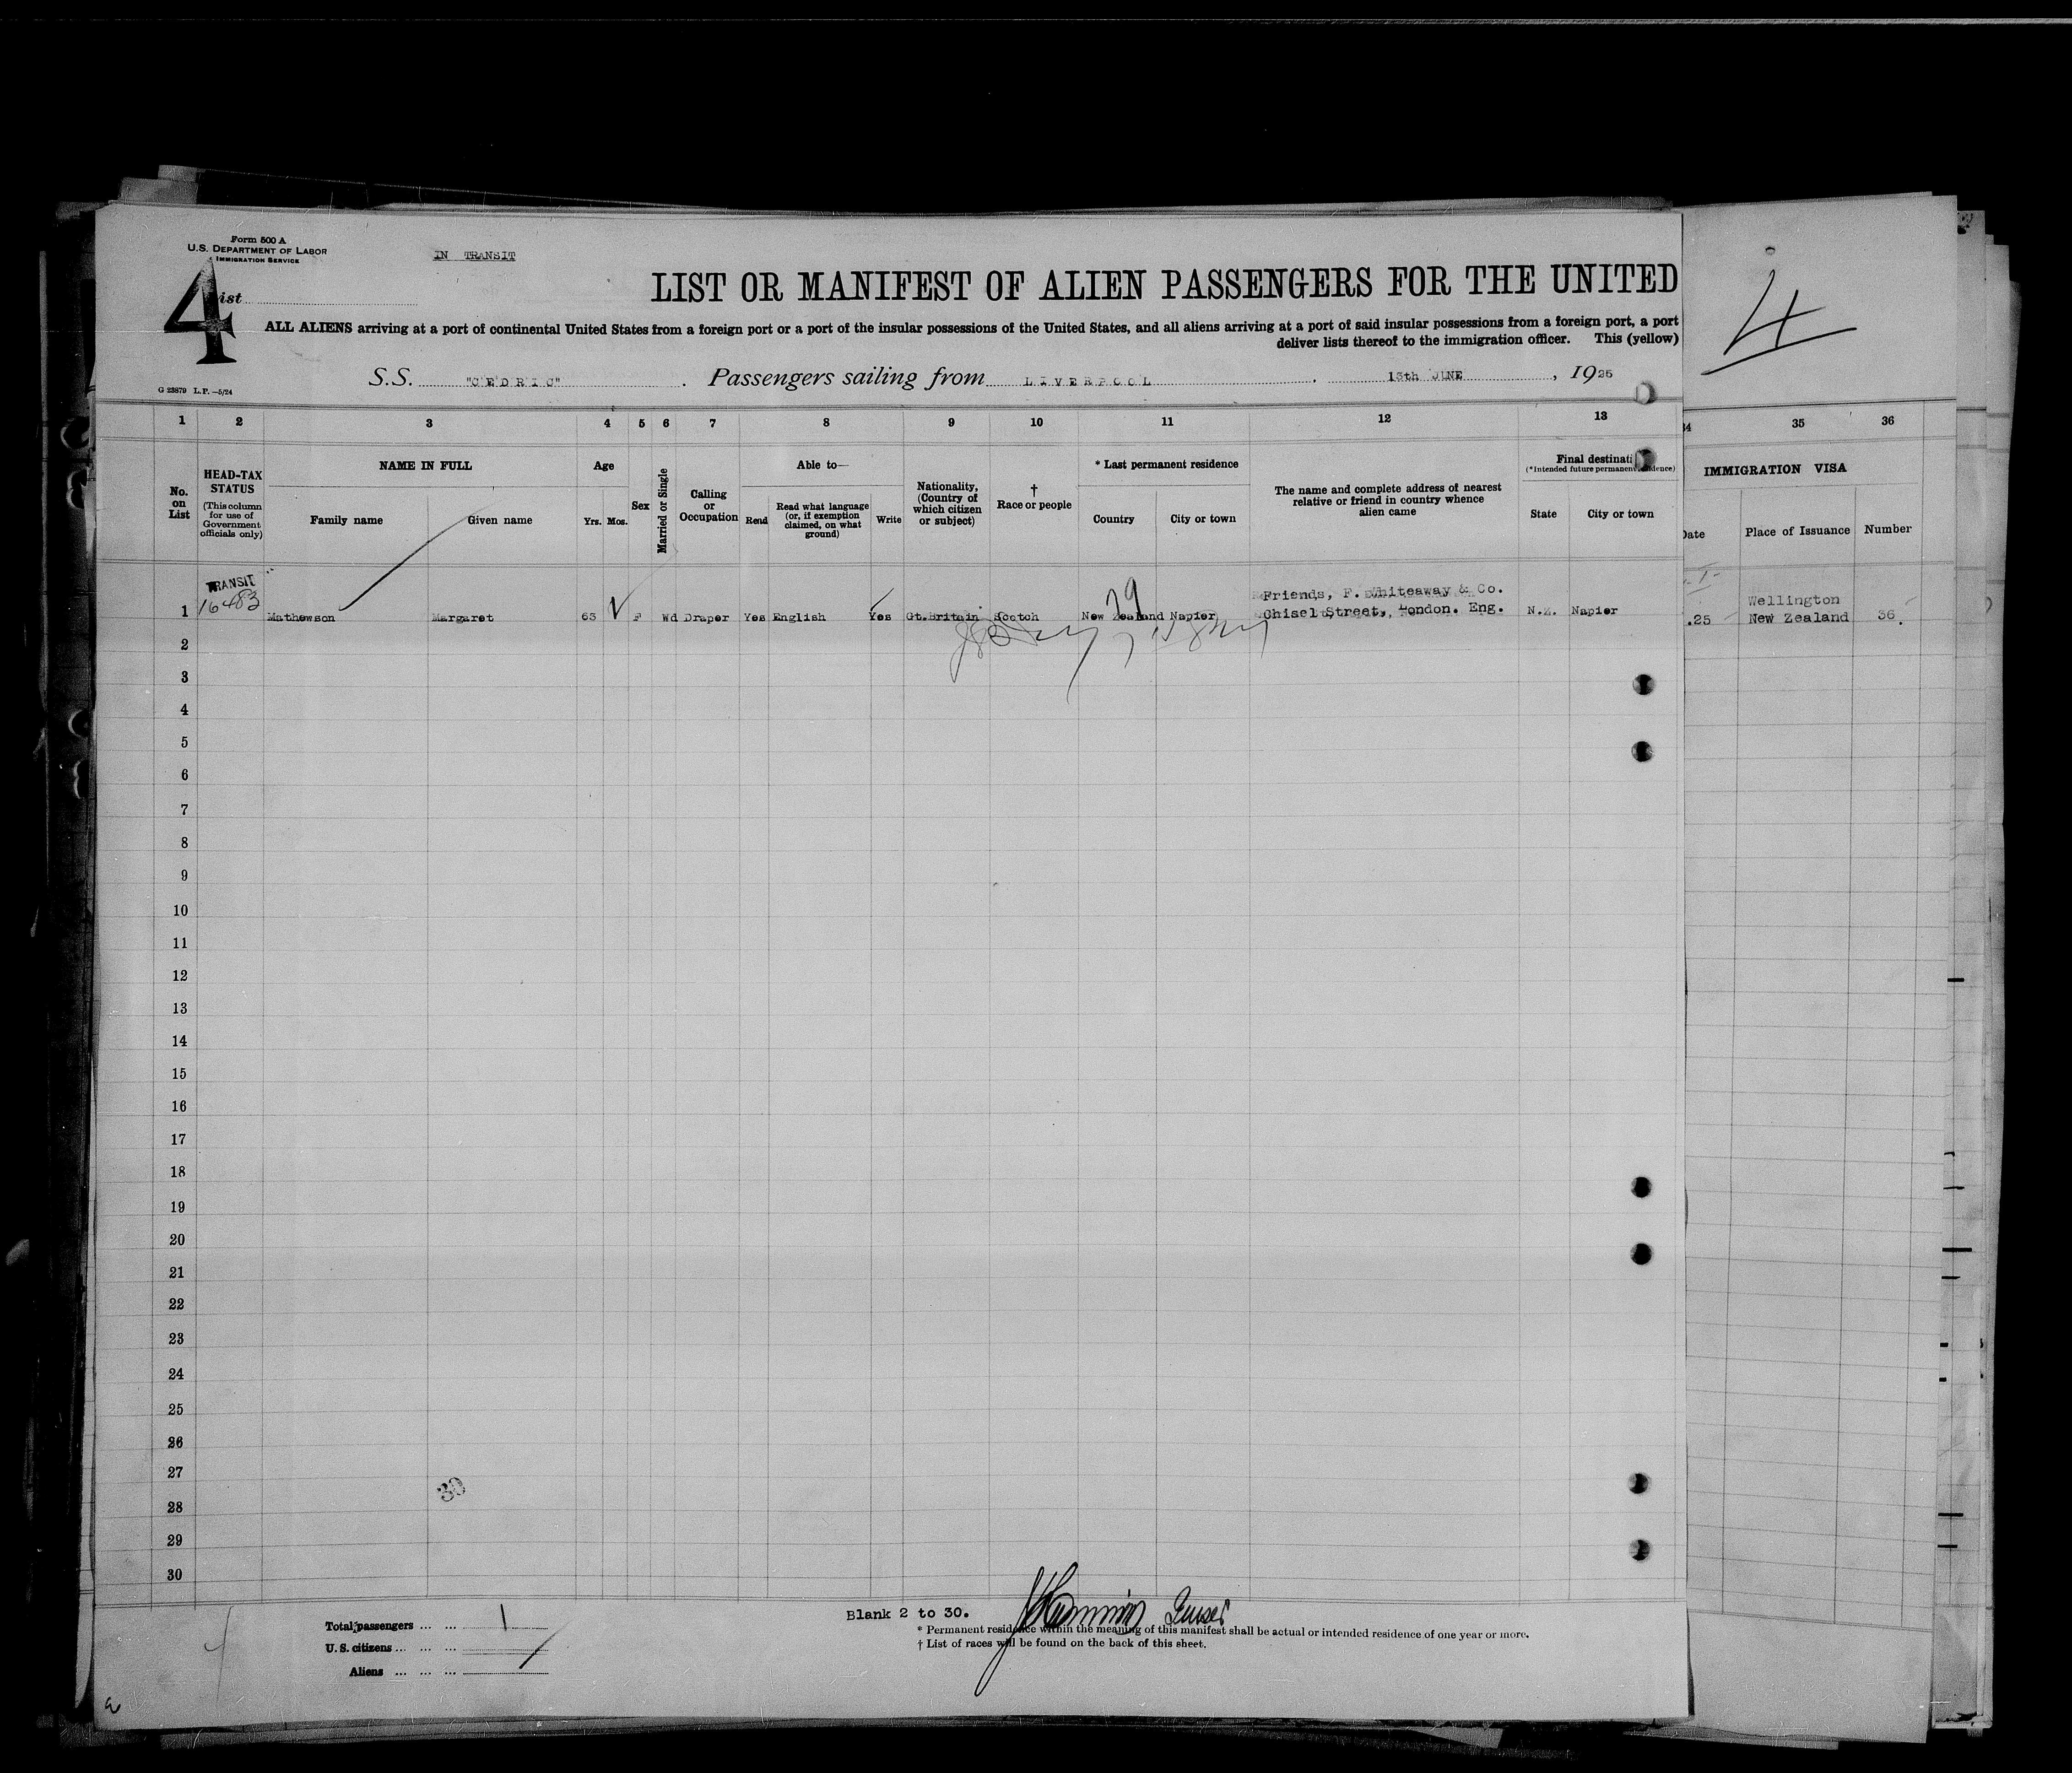 Form 500 A
U.S. DEPARTMENT OF LABOR
IMMIGRATION SERVICE
IN TRANSIT
4
List
LIST OR MANIFEST OF ALIEN PASSENGERS FOR THE UNITED
ALL ALIENS arriving at a port of continental United States from a foreign port or a port of the insular possessions of the United States, and all aliens arriving at a port of said insular possessions from a foreign port, a port
deliver lists thereof to the immigration officer. This (yellow)
4
G 23879 L.P.—5/24
S.S. "CEDRIC" . Passengers sailing from LIVERPOOL . 13th JUNE , 1925
1 2 3 4 5 6 7 8 9 10 11 12 13 34 35 36
No. on List
HEAD-TAX STATUS
(This column for use of Government officials only)
NAME IN FULL
Family name Given name
Age
Yrs. Mos.
Sex
Married or Single
Calling or Occupation
Able to—
Read
Read what language (or, if exemption claimed, on what ground)
Write
Nationality, (Country of which citizen or subject)
† Race or people
* Last permanent residence
Country City or town
The name and complete address of nearest relative or friend in country whence alien came
Final destinati
(*Intended future permanent residence)
State City or town
IMMIGRATION VISA
Date Place of Issuance Number
TRANSIT
16483
1 Mathewson Margaret 63 F Wd Draper Yes English Yes Gt.Britain Scotch New Zealand Napier
Friends, F. Whiteaway & Co.
Chisel Street, London. Eng.
N.Z. Napier
.25
Wellington
New Zealand
36.
79
2
3
4
5
6
7
8
9
10
11
12
13
14
15
16
17
18
19
20
21
22
23
24
25
26
27
28
29
30
30
Total passengers ... ... 1
U. S. citizens ... ... ...
Aliens ... ... ... 1
Blank 2 to 30.
* Permanent residence within the meaning of this manifest shall be actual or intended residence of one year or more.
† List of races will be found on the back of this sheet.